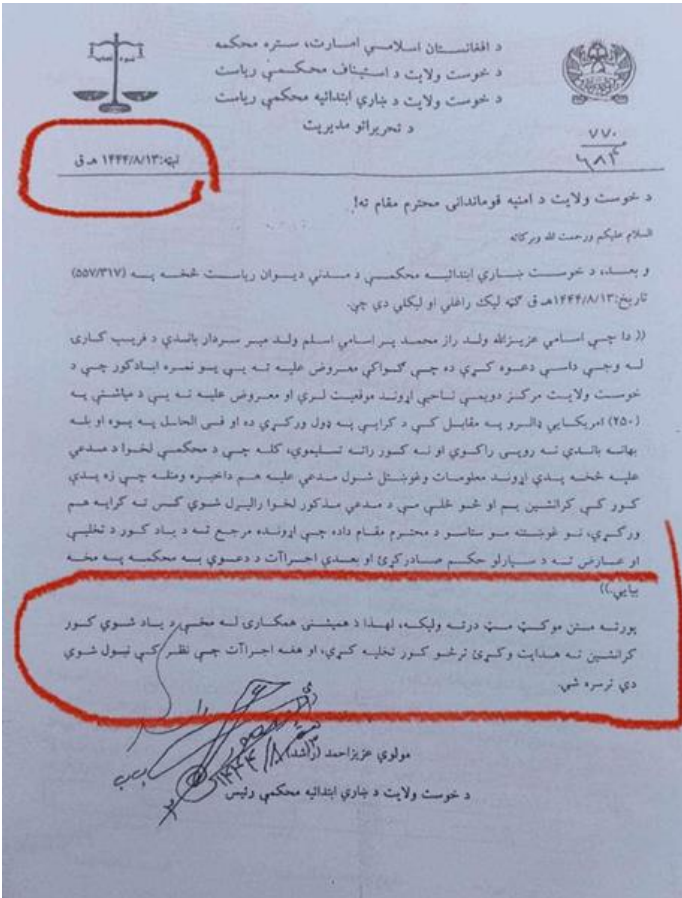 د افغانستان اسلامي امارت، ستره محکمه
د خوست ولايت د استيناف محکمې رياست
د خوست ولايت د ښاري ابتدائيه محکمې رياست
د تحريراتو مديريت
۷۷۰
۶۸۴
نېټه: ۱۴۴۴/۸/۱۳ هـ ق
د خوست ولايت د امنيه قوماندانۍ محترم مقام ته!
السلام عليکم ورحمت لله وبرکاته
و بعد، د خوست ښاري ابتدائيه محکمې د مدني ديوان رياست څخه په (۵۵۷/۳۱۷)
تاريخ: ۱۴۴۴/۸/۱۳هـ ق ګڼه ليک راغلي او ليکلي دي چې.
(( دا چې اسامي عزيزالله ولد راز محمد پر اسامي اسلم ولد مير سردار باندي د فريب کاری
له وجي داسې دعوه کړې ده چې ګواکې معروض عليه ته يې يو نمره ابادکور چې د
خوست ولايت مرکز دويمې ناحيې اړوند موقعيت لري او معروض عليه ته يې د مياشتې په
(۲۵۰) امريکايي ډالرو په مقابل کې د کرايې په ډول ورکړي ده او فی الحال په يوه او بله
بهانه باندي نه روپۍ راکوي او نه کور راته تسليموي، کله چې د محکمې لخوا د مدعي
عليه څخه پدې اړوند معلومات وغوښتل شول مدعي عليه هم داخبره ومنله چې زه پدې
کور کې کرانشين يم او څو ځلي مې د مدعي مذکور لخوا راليږل شوي کس ته کرايه هم
ورکړې، نو غوښتنه مو ستاسو د محترم مقام داده چې اړونده مرجع ته د ياد کور د تخليې
او عارض ته د سپارلو حکم صادرکړئ او بعدي اجراآت د دعوې به محکمه په مخه
بيايي.))
پورته متن موکټ مټ درته وليکه، لهذا د هميشنی همکاری له مخې د ياد شوي کور
کرانشين ته هدايت وکړئ ترڅو کور تخليه کړي، او هغه اجراآت چې نظر کې نيول شوي
دي ترسره شي.
مولوي عزيزاحمد (راشد)
۱۴۴۴/۸/۱۳
د خوست ولايت د ښاري ابتدائيه محکمې رئيس